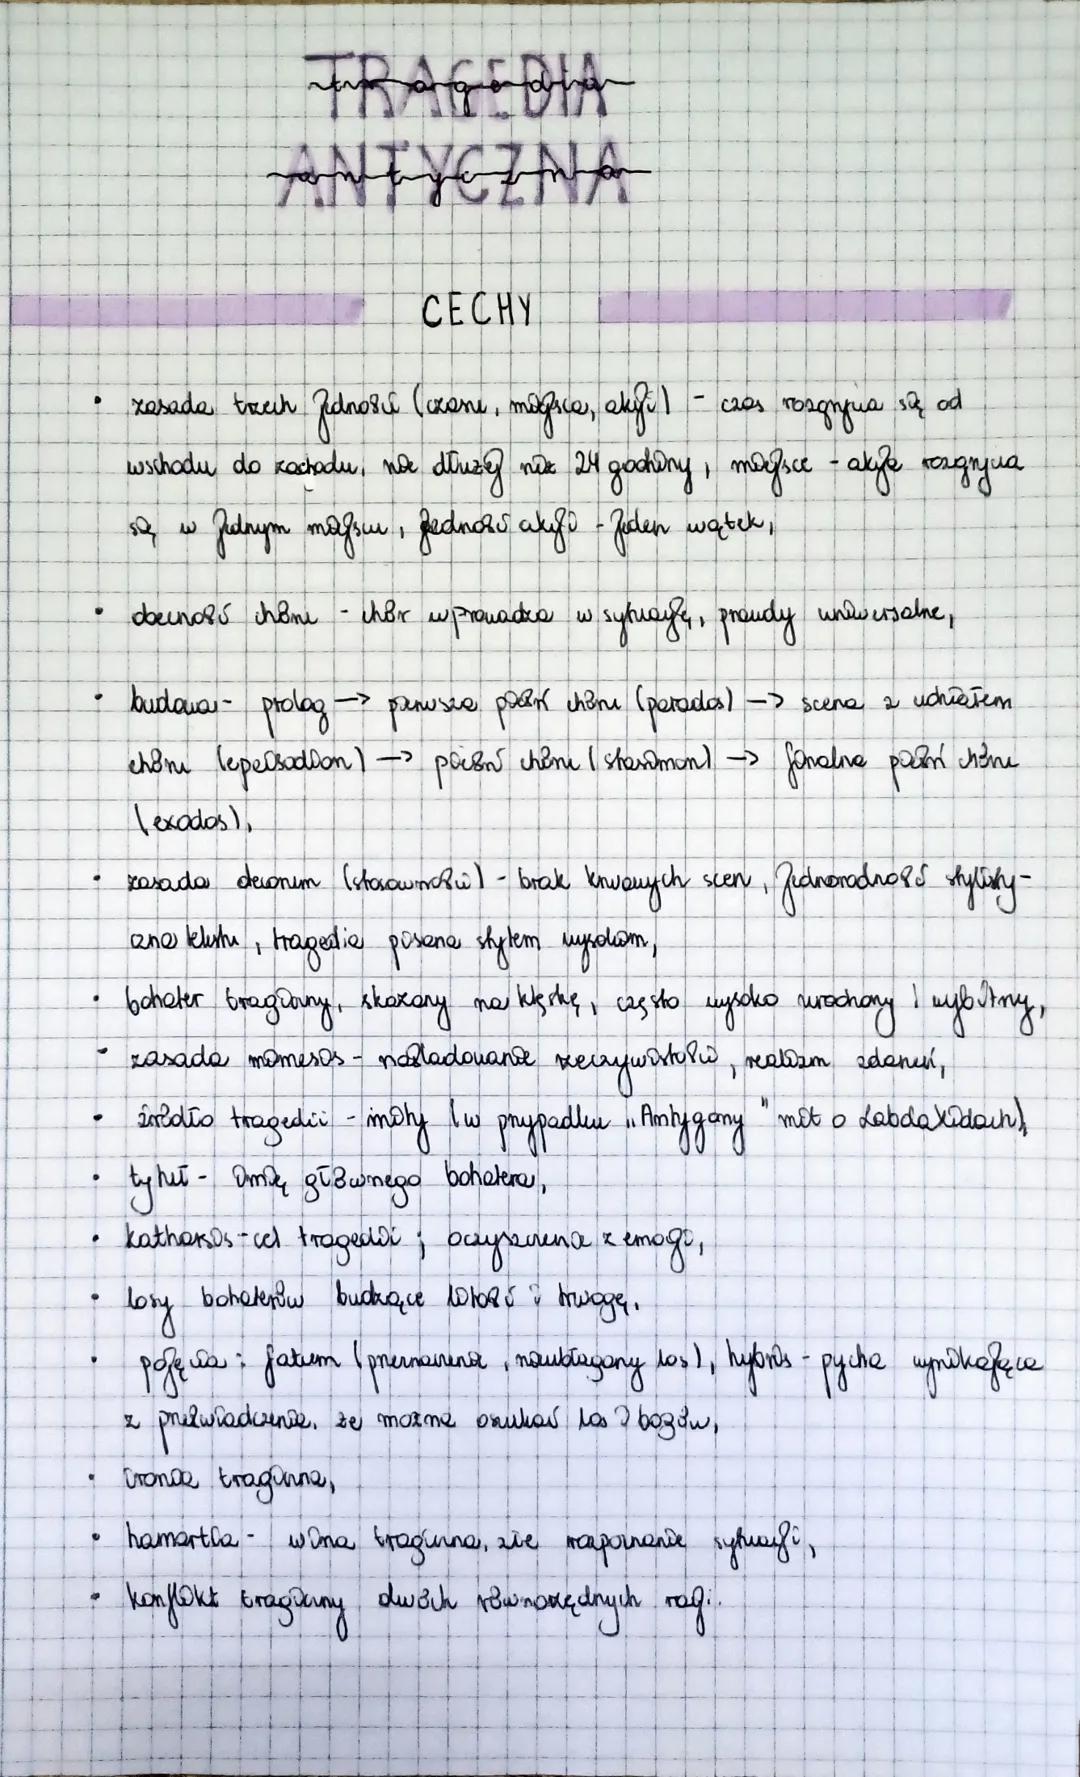 TRAGEDIA
tragedia
ANTYCZNA
antyczna
CECHY
• zasada trzech jedności (czasu, miejsca, akcji) - czas rozgrywa się od
wschodu do zachodu, nie dłużej niż 24 godziny, miejsce - akcja rozgrywa
się w jednym miejscu, jedność akcji - jeden wątek,
• obecność chóru - chór wprowadza w sytuację, prawdy uniwersalne,
• budowa - prolog → pierwsza pieśń chóru (parados) → scena z udziałem
chóru (epeisodion) → pieśń chóru (stasimon) → finalna pieśń chóru
(exodos),
• zasada decorum (stosowności) - brak krwawych scen, jednorodność stylisty-
czna tekstu, tragedia pisana stylem wysokim,
• bohater tragiczny, skazany na klęskę, często wysoko urodzony i wybitny,
• zasada mimesis - naśladowanie rzeczywistości, realizm zdarzeń,
• źródło tragedii - mity (w przypadku „Antygony" mit o Labdakidach),
• tytuł - imię głównego bohatera,
• katharsis - cel tragedii; oczyszczenie z emocji,
• losy bohaterów budzące litość i trwogę,
• pojęcia: fatum (przeznaczenie, nieubłagany los), hybris - pycha wynikająca
z przeświadczenia, że można oszukać los i bogów,
• ironia tragiczna,
• hamartia - wina tragiczna, złe rozpoznanie sytuacji,
• konflikt tragiczny dwóch równorzędnych racji.